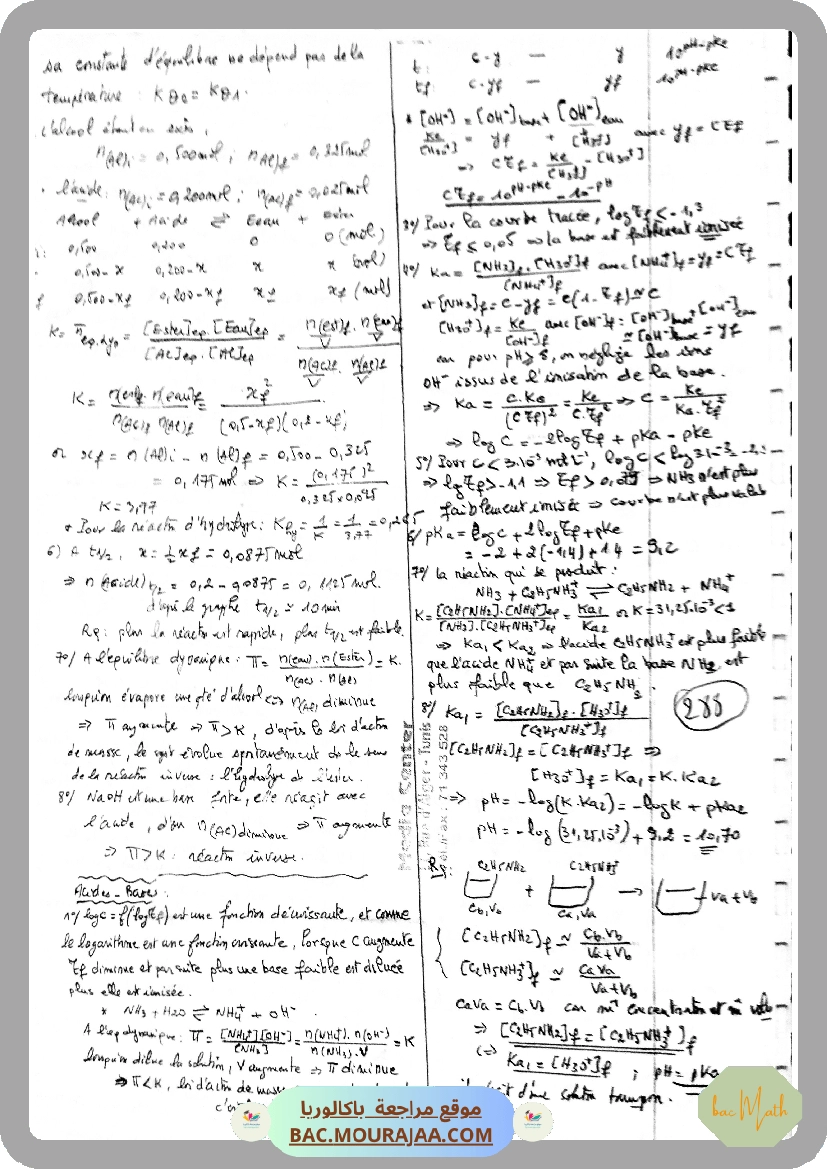 sa constante d'équilibre ne dépend pas de la
température : Kθ0 = Kθ1.
L'alcool étant en excès,
n(Al)i = 0,500 mol ; n(Al)f = 0,325 mol
• l'acide : n(Ac)i = 0,200 mol ; n(Ac)f = 0,025 mol
Alcool + Acide ⇌ Eau + Ester
0,500 0,200 0 0 (mol)
0,500-x 0,200-x x x (mol)
f 0,500-xf 0,200-xf xf xf (mol)
K = πéq.dyn = [Ester]éq.[Eau]éq / [AC]éq.[Al]éq = n(est)f/V . n(eau)f/V / n(Ac)f/V . n(Al)f/V
K = n(est)f n(eau)f / n(Ac)f n(Al)f = xf² / (0,5-xf)(0,2-xf)
or xf = n(Al)i - n(Al)f = 0,500 - 0,325
= 0,175 mol ⇒ K = (0,175)² / 0,325x0,025
K = 3,77
* Pour la réaction d'hydrolyse : Khy = 1/K = 1/3,77 = 0,265
6) A t1/2, x = 1/2 xf = 0,0875 mol
⇒ n(Acide)t1/2 = 0,2 - 0,0875 = 0,1125 mol.
d'après le graphe t1/2 ≃ 10 min
Rq : plus la réaction est rapide, plus t1/2 est faible.
7°/ A l'équilibre dynamique : π = n(eau).n(Ester) / n(Ac).n(Al) = K.
lorsqu'on évapore une qté d'alcool ⇔ n(Al) diminue
⇒ π augmente ⇒ π>K, d'après la loi d'action
de masse, le syst évolue spontanément ds le sens
de la réaction inverse : l'hydrolyse de l'ester.
8°/ NaOH est une base forte, elle réagit avec
l'acide, d'où n(AC) diminue ⇒ π augmente
⇒ π>K : réaction inverse.
Acides - Bases :
1°/ logc = f(logτf) est une fonction décroissante, et comme
le logarithme est une fonction croissante, lorsque C augmente
τf diminue et par suite plus une base faible est diluée
plus elle est ionisée.
* NH3 + H2O ⇌ NH4+ + OH-
A l'éq dynamique : π = [NH4+][OH-] / [NH3] = n(NH4+).n(OH-) / n(NH3).V = K
lorsqu'on dilue la solution, V augmente ⇒ π diminue
⇒ π<K, loi d'action de masse
t : c-y — y 10^pH-pKe
tf : c-yf — yf 10^pH-pKe
* [OH-] = [OH-]base + [OH-]eau
Ke/[H3O+] = yf + [H3O+] avec yf = Cτf
⇒ Cτf = Ke/[H3O+] - [H3O+]
Cτf = 10^pH-pKe - 10^-pH
3°/ Pour la courbe tracée, logτf ≤ -1,3
⇒ τf ≤ 0,05 ⇒ la base est faiblement ionisée
4°/ Ka = [NH3]f.[H3O+]f / [NH4+]f avec [NH4+]f = yf = Cτf
et [NH3]f = C-yf = C(1-τf) ≃ C
[H3O+]f = Ke/[OH-]f avec [OH-]f = [OH-]base + [OH-]eau
≃ [OH-]base = yf
car pour pH ≥ 8, on néglige les ions
OH- issus de l'ionisation de la base.
⇒ Ka = C.Ke/(Cτf)² = Ke/C.τf² ⇒ C = Ke/Ka.τf²
⇒ log C = -2logτf + pKa - pKe
5°/ Pour C < 3.10-3 mol L-1, log C < log 3.10-3
⇒ logτf > -1,1 ⇒ τf > 0,05 ⇒ NH3 n'est plus
faiblement ionisée ⇒ courbe n'est plus valable
6/ pKa = logC + 2logτf + pKe
= -2 + 2(-1,4) + 14 = 9,2
7°/ la réaction qui se produit :
NH3 + C2H5NH3+ ⇌ C2H5NH2 + NH4+
K = [C2H5NH2].[NH4+]éq / [NH3].[C2H5NH3+]éq = Ka1/Ka2 or K = 31,25.10-3 < 1
⇒ Ka1 < Ka2 ⇒ l'acide C2H5NH3+ est plus faible
que l'acide NH4+ et par suite la base NH3 est
plus faible que C2H5NH2.
288
8°/ Ka1 = [C2H5NH2]f.[H3O+]f / [C2H5NH3+]f
[C2H5NH2]f = [C2H5NH3+]f ⇒
[H3O+]f = Ka1 = K.Ka2
⇒ pH = -log(K.Ka2) = -logK + pKa2
pH = -log(31,25.10-3) + 9,2 = 10,70
Rq
C2H5NH2 C2H5NH3+
+ → Va+Vb
Cb,Vb Ca,Va
[C2H5NH2]f ≃ Cb.Vb / Va+Vb
[C2H5NH3+]f ≃ CaVa / Va+Vb
CaVa = Cb.Vb car m^t concentration et m^t volume
⇒ [C2H5NH2]f = [C2H5NH3+]f
⇔ Ka1 = [H3O+]f ; pH = pKa
d'une solution tampon.
Media Center
Rue d'Alger - Tunis
Tel/Fax : 71 343 528
موقع مراجعة باكالوريا
BAC.MOURAJAA.COM
bac Math